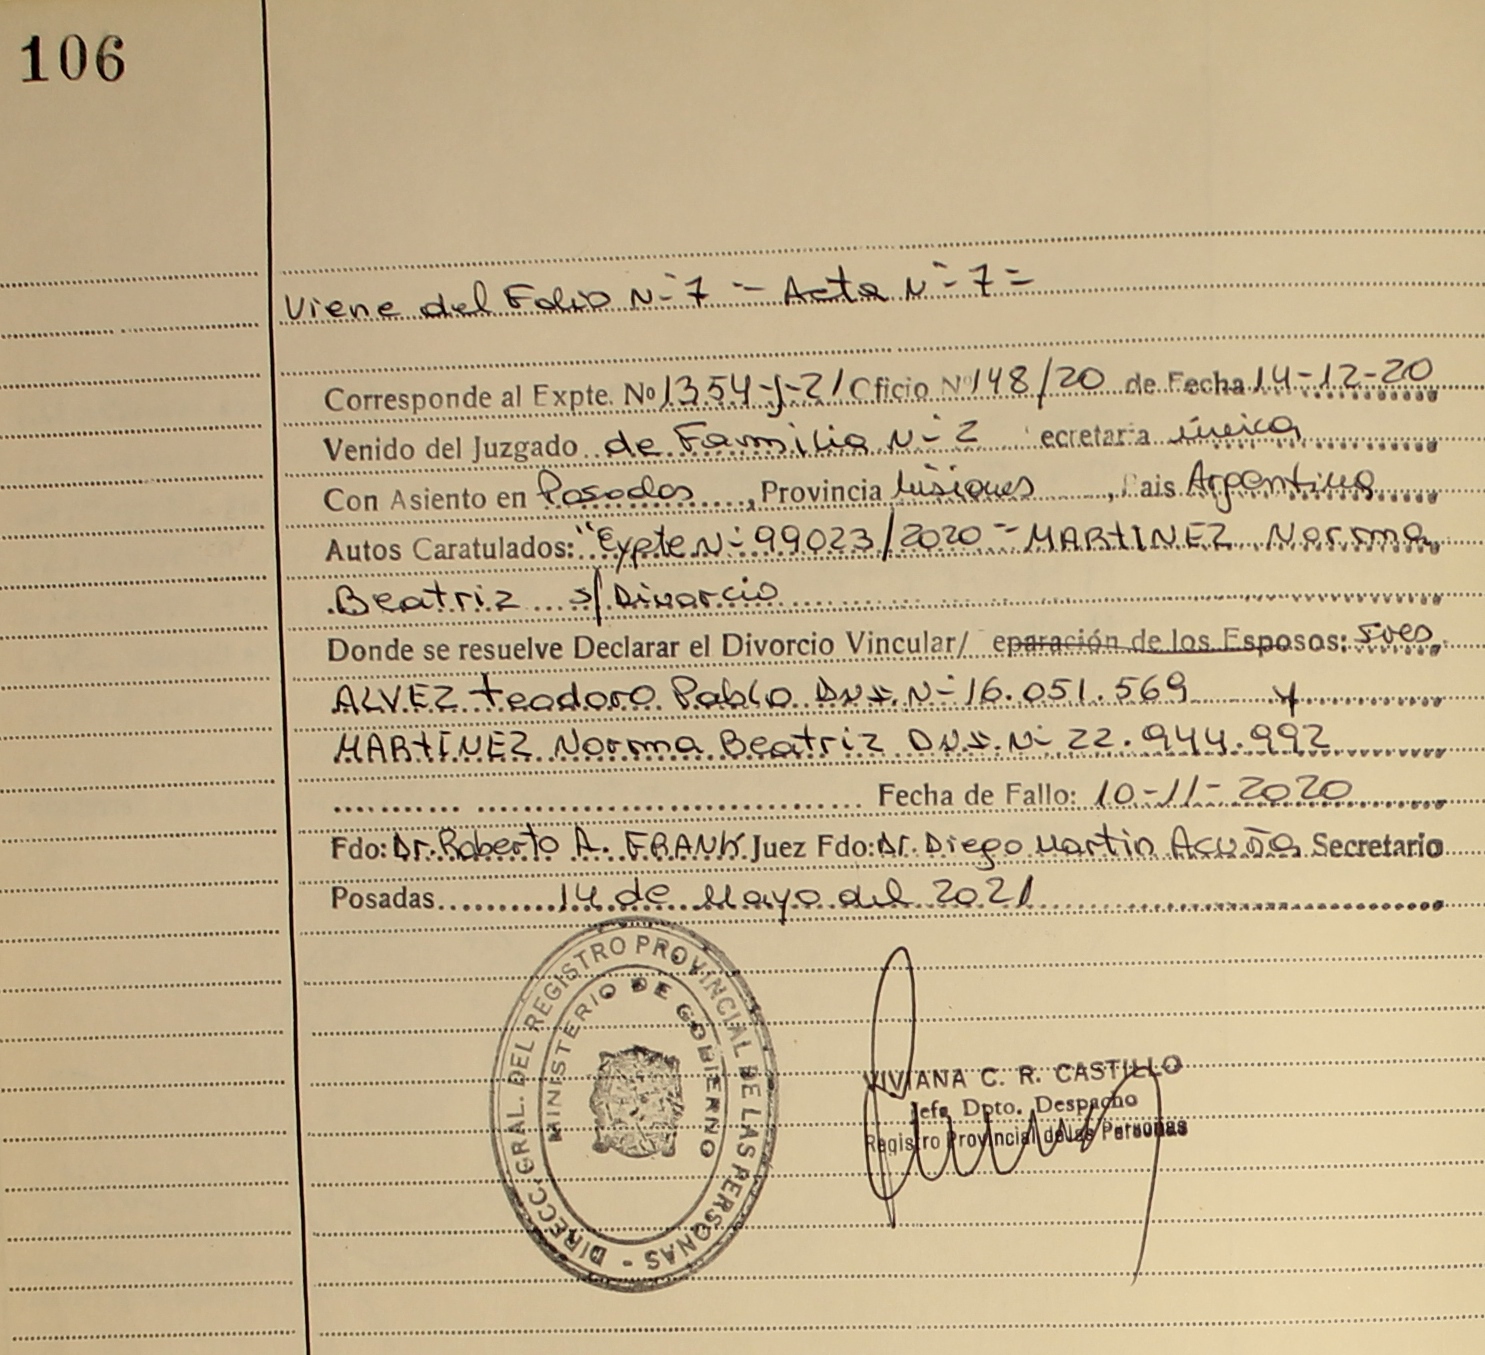 106
Viene del Folio N-7 - Acta N-7=
Corresponde al Expte. Nº 1354-J-21 Oficio Nº 148/20 de Fecha 14-12-20
Venido del Juzgado de Familia N-2 ecretaria única
Con Asiento en Posadas, Provincia Misiones, Pais Argentina
Autos Caratulados: "Expte N-99023/2020 - MARTINEZ Norma
Beatriz s/ Divorcio
Donde se resuelve Declarar el Divorcio Vincular/ eparación de los Esposos: Sres.
ALVEZ Teodoro Pablo DNI. N-16.051.569 y
MARTINEZ Norma Beatriz DNI. N- 22.944.992
Fecha de Fallo: 10-11-2020
Fdo: Dr. Roberto A. FRANK Juez Fdo: Dr. Diego Martin Acuña Secretario
Posadas 14 de Mayo del 2021
DIRECC. GRAL. DEL REGISTRO PROVINCIAL DE LAS PERSONAS -
MINISTERIO DE GOBIERNO
VIVIANA C. R. CASTILLO
Jefa Dpto. Despacho
Registro Provincial de las Personas